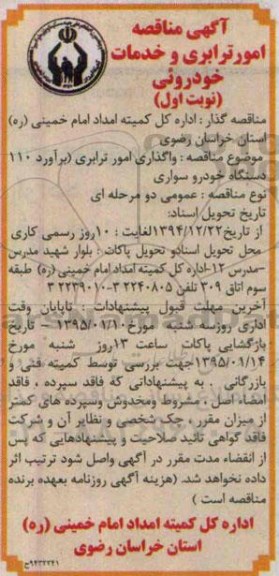 آگهی مناقصه
امورترابری و خدمات
خودروئی
(نوبت اول)
مناقصه گذار : اداره کل کمیته امداد امام خمینی (ره)
استان خراسان رضوی
موضوع مناقصه : واگذاری امور ترابری (برآورد ۱۱۰
دستگاه خودرو سواری
نوع مناقصه : عمومی دو مرحله ای
تاریخ تحویل اسناد:
از تاریخ ۱۳۹۴/۱۲/۲۲ لغایت : ۱۰ روز رسمی کاری
محل تحویل اسنادو تحویل پاکات : بلوار شهید مدرس
-مدرس ۱۲-اداره کل کمیته امداد امام خمینی (ره) طبقه
سوم اتاق ۳۰۹ تلفن ۳۲۲۴۰۸۰۵-۳۲۲۳۹۰۱۰
آخرین مهلت قبول پیشنهادات : تاپایان وقت
اداری روزسه شنبه مورخ ۱۳۹۵/۰۱/۱۰- تاریخ
بازگشایی پاکات ساعت ۱۳روز شنبه مورخ
۱۳۹۵/۰۱/۱۴جهت بررسی توسط کمیته فنی و
بازرگانی . به پیشنهاداتی که فاقد سپرده ، فاقد
امضاء اصل ، مشروط ومخدوش وسپرده های کمتر
از میزان مقرر ، چک شخصی و نظایر آن و شرکت
فاقد گواهی تائید صلاحیت و پیشنهادهایی که پس
از انقضاء مدت مقرر در آگهی واصل شود ترتیب اثر
داده نخواهد شد. (هزینه آگهی روزنامه بعهده برنده
مناقصه است )
اداره کل کمیته امداد امام خمینی (ره)
استان خراسان رضوی